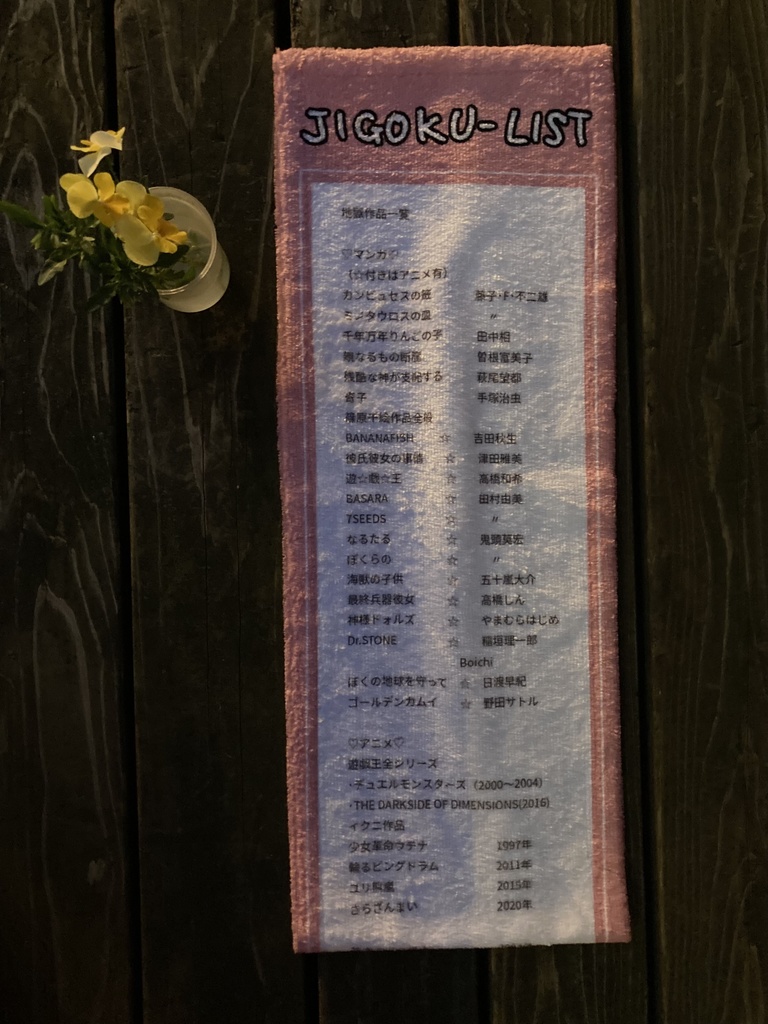 JIGOKU-LIST
地獄作品一覧
♡マンガ♡
(☆付きはアニメ有)
カンビュセスの籤 藤子・F・不二雄
ミノタウロスの皿 〃
千年万年りんごの子 田中相
親なるもの断崖 曽根富美子
残酷な神が支配する 萩尾望都
奇子 手塚治虫
篠原千絵作品全般
BANANAFISH ☆ 吉田秋生
彼氏彼女の事情 ☆ 津田雅美
遊☆戯☆王 ☆ 高橋和希
BASARA ☆ 田村由美
7SEEDS ☆ 〃
なるたる ☆ 鬼頭莫宏
ぼくらの ☆ 〃
海獣の子供 ☆ 五十嵐大介
最終兵器彼女 ☆ 高橋しん
神様ドォルズ ☆ やまむらはじめ
Dr.STONE ☆ 稲垣理一郎
Boichi
ぼくの地球を守って ☆ 日渡早紀
ゴールデンカムイ ☆ 野田サトル
♡アニメ♡
遊戯王全シリーズ
・デュエルモンスターズ（2000〜2004）
・THE DARKSIDE OF DIMENSIONS(2016)
イクニ作品
少女革命ウテナ 1997年
輪るピングドラム 2011年
ユリ熊嵐 2015年
さらざんまい 2020年